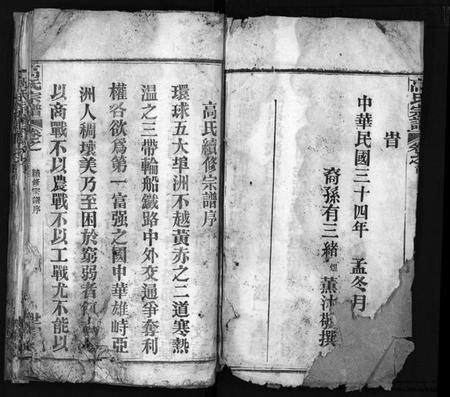 高氏宗譜
旹
中華民國三十四年 孟冬月
裔孫有三緒煙薰沐敬撰
高氏續修宗譜序
環球五大埠洲不越黃赤之二道寒熱
溫之三帶輪船鐵路中外交通爭奪利
權各欲爲第一富強之國中華雄峙亞
洲人稠壤美乃至困於窮弱者
以商戰不以農戰不以工戰尤不能以
高氏宗譜
續修宗譜序